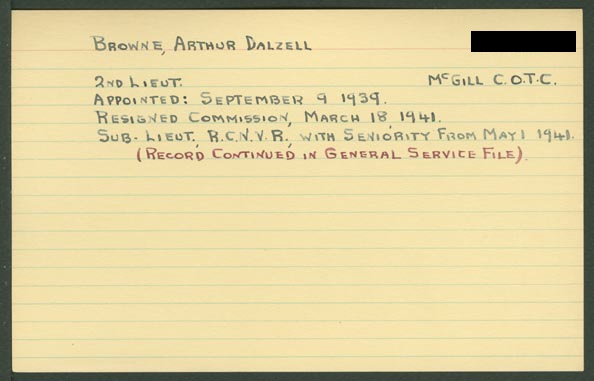 BROWNE, ARTHUR DALZELL
2ND LIEUT. McGILL C.O.T.C.
APPOINTED: SEPTEMBER 9 1939.
RESIGNED COMMISSION, MARCH 18 1941.
SUB-LIEUT, R.C.N.V.R, WITH SENIORITY FROM MAY 1 1941.
(RECORD CONTINUED IN GENERAL SERVICE FILE).